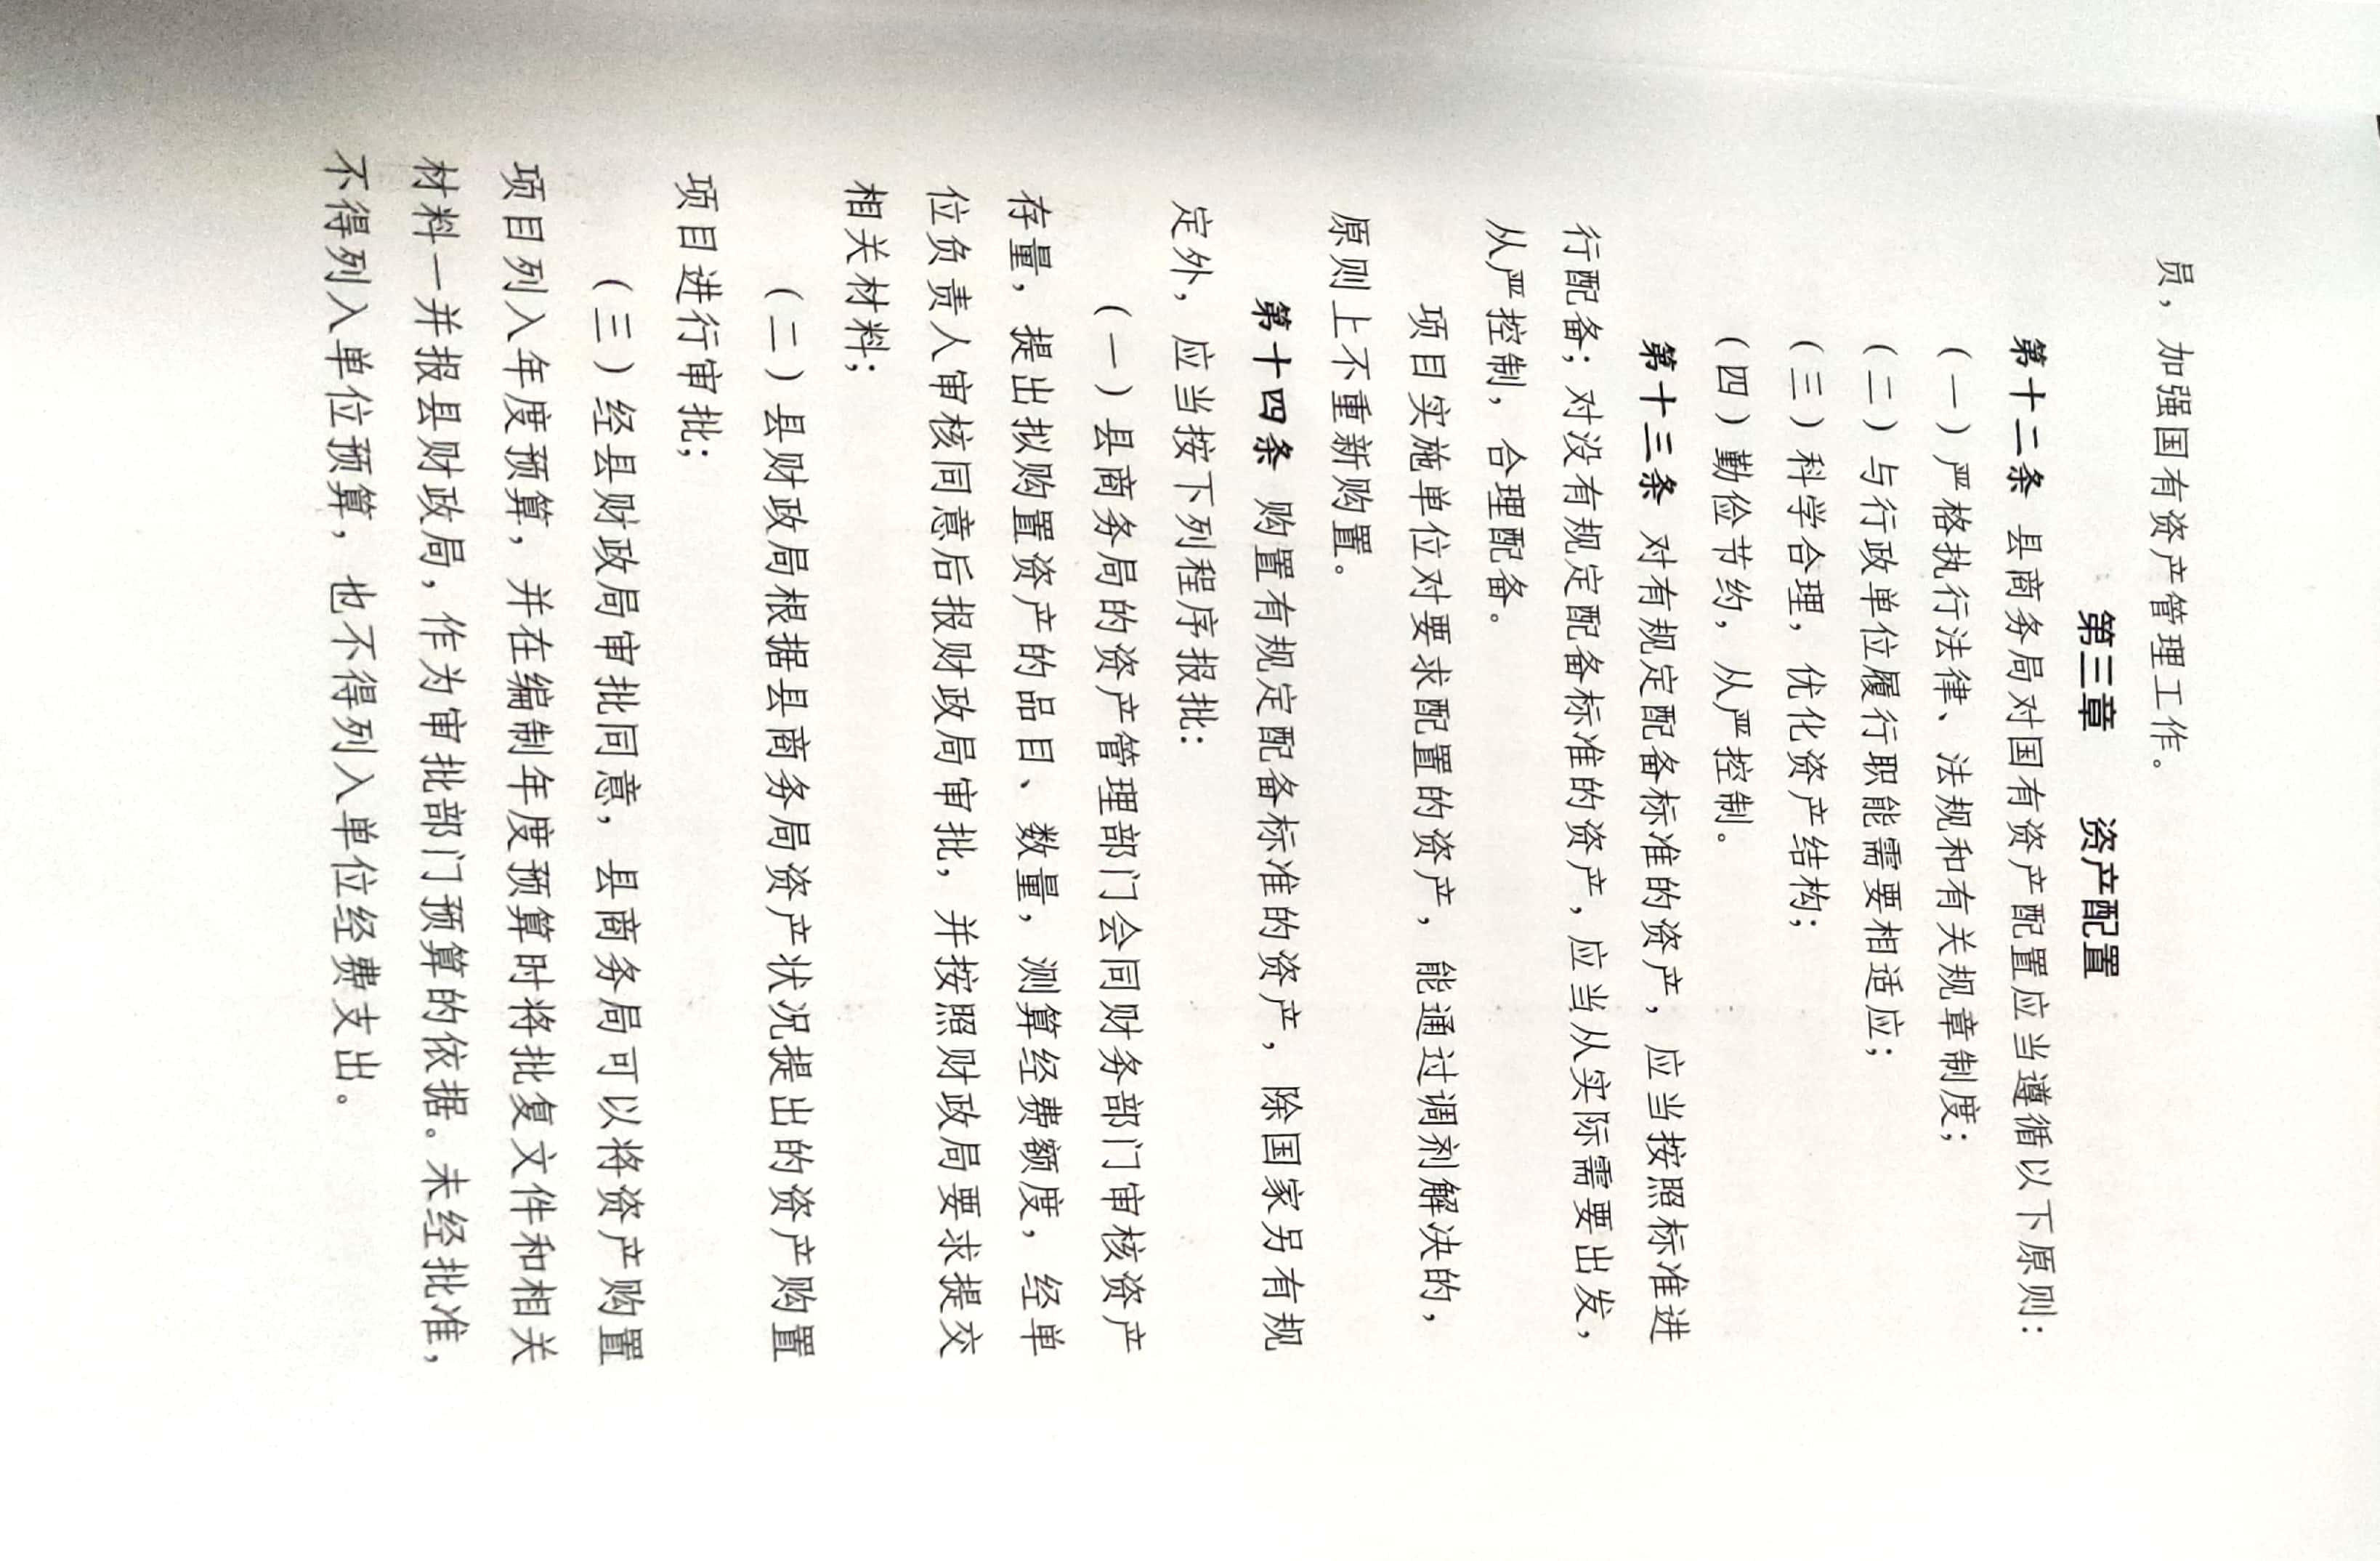 员，加强国有资产管理工作。
第三章 资产配置
第十二条 县商务局对国有资产配置应当遵循以下原则：
（一）严格执行法律、法规和有关规章制度；
（二）与行政单位履行职能需要相适应；
（三）科学合理，优化资产结构；
（四）勤俭节约，从严控制。
第十三条 对有规定配备标准的资产，应当按照标准进
行配备；对没有规定配备标准的资产，应当从实际需要出发，
从严控制，合理配备。
项目实施单位对要求配置的资产，能通过调剂解决的，
原则上不重新购置。
第十四条 购置有规定配备标准的资产，除国家另有规
定外，应当按下列程序报批：
（一）县商务局的资产管理部门会同财务部门审核资产
存量，提出拟购置资产的品目、数量，测算经费额度，经单
位负责人审核同意后报财政局审批，并按照财政局要求提交
相关材料；
（二）县财政局根据县商务局资产状况提出的资产购置
项目进行审批；
（三）经县财政局审批同意，县商务局可以将资产购置
项目列入年度预算，并在编制年度预算时将批复文件和相关
材料一并报县财政局，作为审批部门预算的依据。未经批准，
不得列入单位预算，也不得列入单位经费支出。